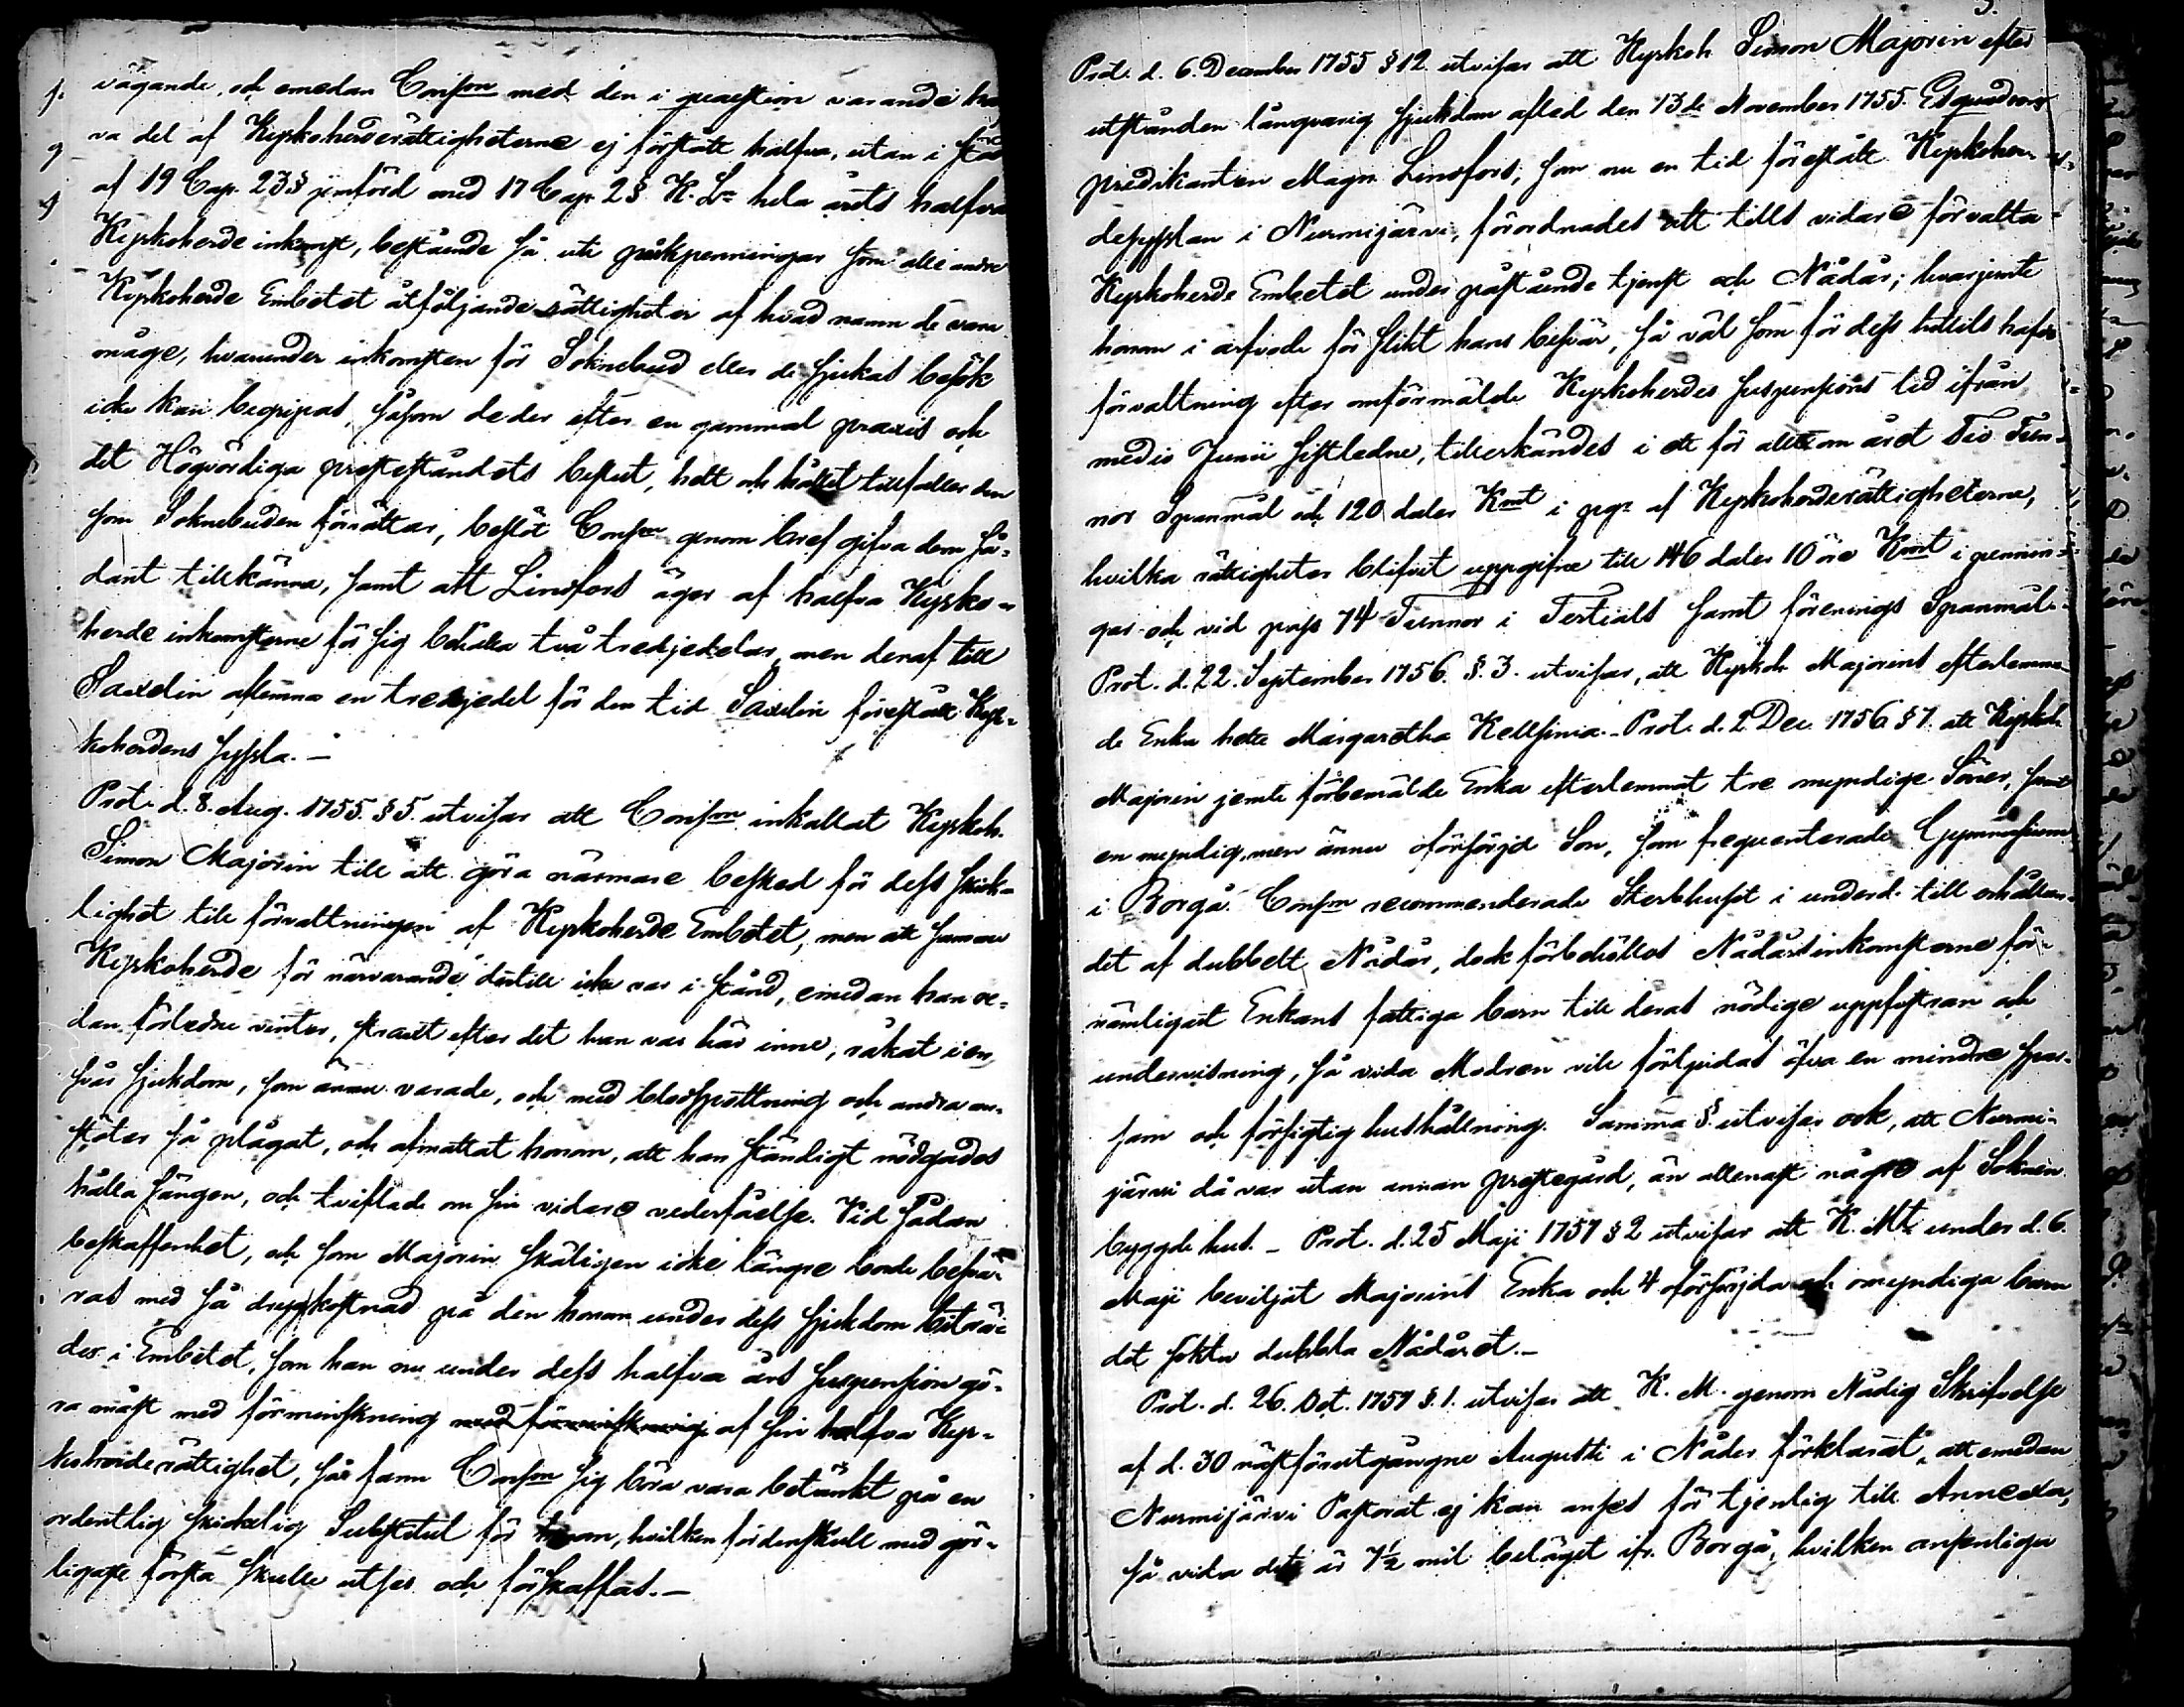 vägande, och emedan Consm med den i quaestion varande hal
va del af Kyrkoherderättigheterne ej förstått halfva, utan i stöd
af 19 Cap. 23§ jemförd med 17 Cap. 2§ K. L= hela årets halfva
Kyrkoherde inkomst, bestående så uti påskpenningar som alle andre
Kyrkoherde Embetet åtföljande rättigheter af hvad namn de vara
måge, hvarunder inkomsten för Soknebud eller de sjukas besök
icke kan begripas, såsom de der efter en gammal praxis och
det Högvördiga presteståndets beslut, helt och hållet tillfaller den
som Soknebuden förrättar, beslöt Consm genom bref gifva dem så=
dant tillkänna, samt att Lindfors äger af halfva Kyrko=
herde inkomsterne för sig behålla två tredjedelar, men deraf till
Saxelin aflemna en tredjedel för den tid Saxelin förestått Kyr=
koherdens syssla. —
Prot. d. 8. Aug. 1755. § 5. utvisar att Consm inkallat Kyrkoh.
Simon Majorin till att göra närmare besked för dess skick=
lighet till förvaltningen af Kyrkoherde Embetet, men att samme
Kyrkoherde för närvarande dertill icke var i stånd, emedan han re=
dan förledne vinter, straxt efter det han var här inne, råkat i en
svår sjukdom, som ännu varade, och med blodspottning och andra an=
stöter så plågat, och afmattat honom, att han ständigt nödgades
hålla sängen, och tviflade om sin vidare vederfåelse. Vid sådan
beskaffenhet, och som Majorin skäligen icke längre borde besvä=
ras med så dryg kostnad på den honom under dess sjukdom biträ=
der i Embetet, som han nu under dess halfva års suspension gö=
ra måst med förminskning med förminskning af sin halfva Kyr=
koherderättighet, här fann Consm sig böra vara betänkt på en
ordentlig skickelig Substitut för honom, hvilken fördenskull med gör=
ligaste första skulle utses och förskaffas. —
Prot. d. 6. December 1755 § 12 utvisar att Kyrkoh Simon Majorin efter
utstånden långvarig sjukdom afled den 13de November 1755. Esquadrons
predikanten Magn. Lindfors, som nu en tid förestått Kyrkoher=
desysslan i Nurmijärvi, förordnades att tills vidare förvalta
Kyrkoherde Embetet under påstående tjenst och Nådår; hvarjemte
honom i arfvode för slikt hans besvär, så väl som för dess hittills hafda
förvaltning efter omförmälde Kyrkoherdes suspensions tid ifrån
medio Junii sistledne, tillerkändes i ett för allt om året Tio Tun=
nor Spanmål och 120 daler Kmt i pgr af Kyrkoherderättigheterne,
hvilka rättigheter blifvit uppgifne till 146 daler 10 öre Kmt i pennin=
gar och vid pass 74 Tunnor i Tertials samt förenings Spanmål.
Prot. d. 22. September 1756. §. 3. utvisar, att Kyrkoh Majorins efterlemna
de Enka hette Margaretha Kellsinia. - Prot. d. 2 Dec. 1756 § 7. att Kyrkoh.
Majorin jemte förbemälde Enka efterlemnat tre myndige Söner, samt
en myndig, men ännu oförsörjd Son, som frequenterade Gymnasium
i Borgå. Consm recommenderade Sterbhuset i underd. till erhållan=
det af dubbelt Nådår, dock förbehölles Nådårsinkomsterne för=
nämligast Enkans fattiga barn till deras nödige uppfostran och
undervisning, så vida Modren vill förljudas öfva en mindre spar=
sam och försigtig hushållning. Samma § utvisar ock, att Nurmi=
järvi då var utan annan prestegård, än allenast någre af Soknen
byggde hus. — Prot. d. 25 Maji 1757 § 2 utvisar att K. Mt. under d. 6.
Maji beviljat Majorins Enka och 4 oförsörjda och omyndiga barn
det sökta dubbla Nådåret. —
Prot. d. 26. Oct. 1757 §. 1. utvisar att K. M. genom Nådig Skrifvelse
af d. 30 nästförutgångne Augusti i Nåder förklarat, att emedan
Nurmijärvi Pastorat ej kan anses för tjenlig till Annexa,
så vida dets är 7½ mil beläget ifr. Borgå, hvilken ansenliga